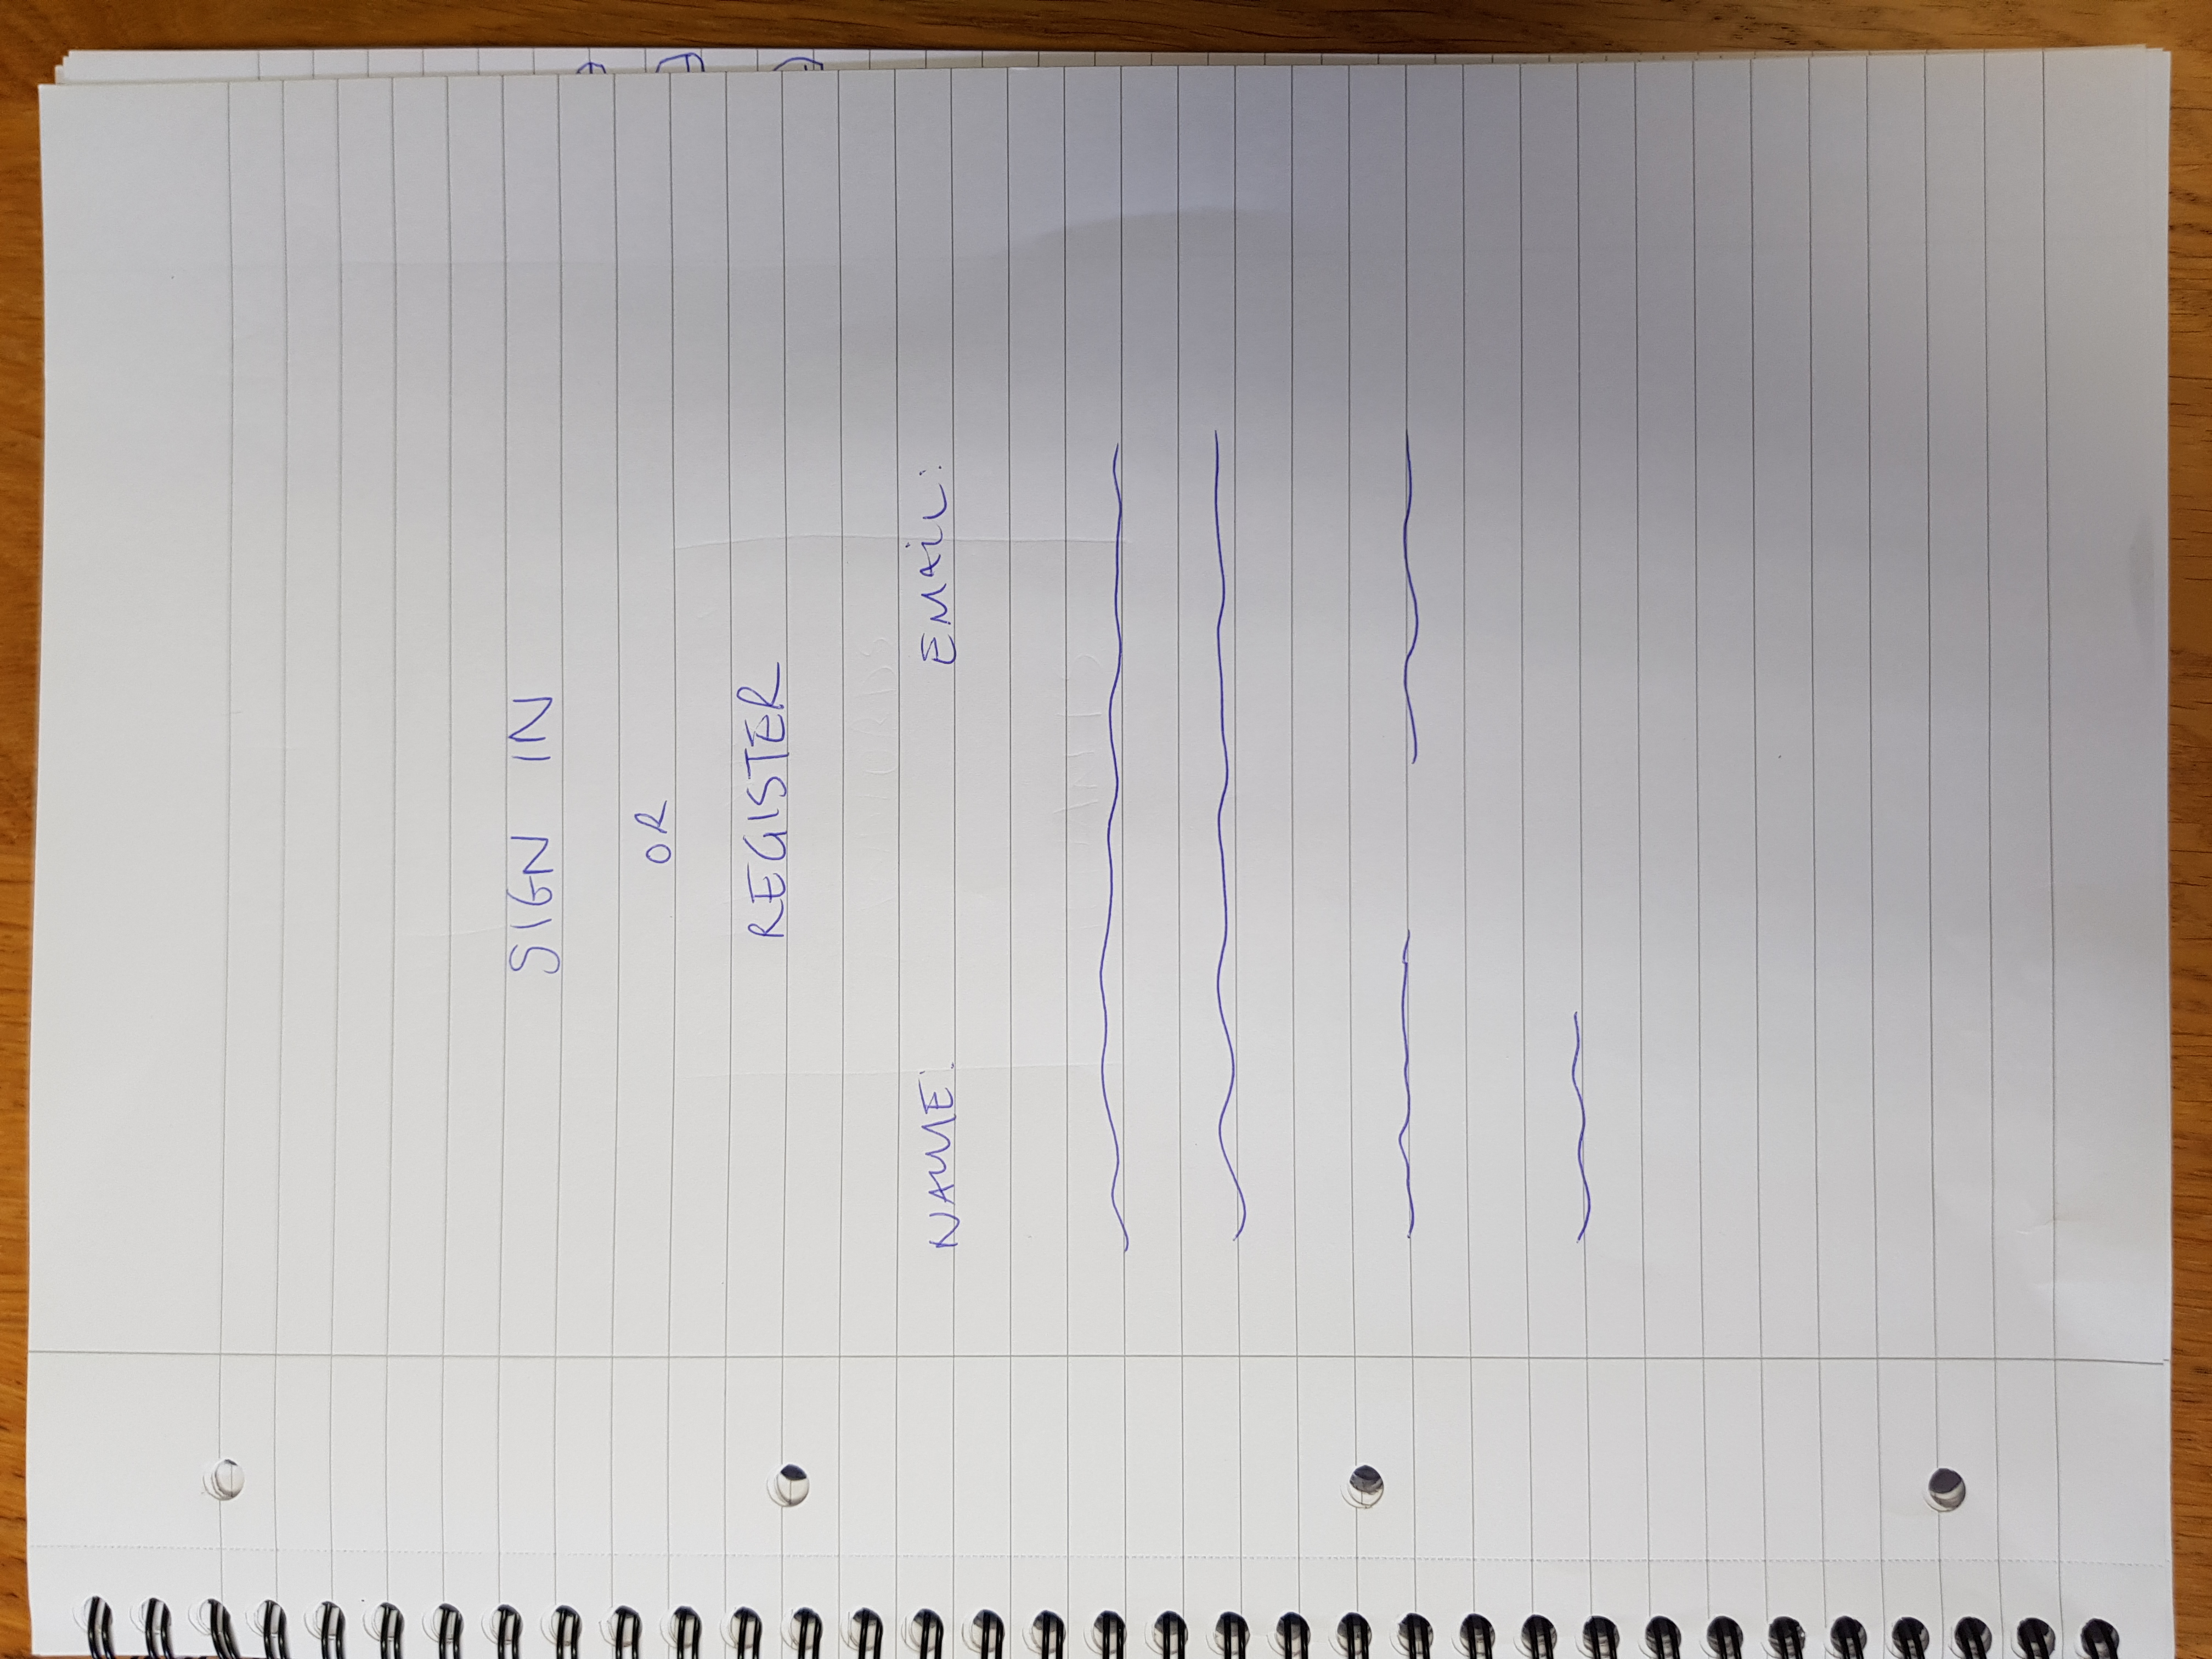 SIGN IN
OR
REGISTER
NAME: EMAIL: